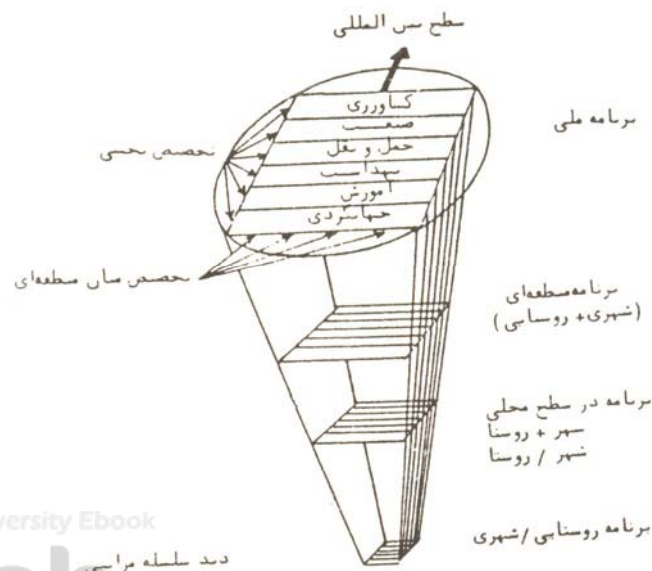 سطح بین المللی
کشاورزی
صنعت
حمل و نقل
بهداشت
آموزش
جهانگردی
برنامه ملی
تخصیص بخشی
تخصیص میان منطقه‌ای
برنامه منطقه‌ای
(شهری + روستایی)
برنامه در سطح محلی
شهر + روستا
شهر / روستا
برنامه روستایی / شهری
versity Ebook
دید سلسله مراتبی